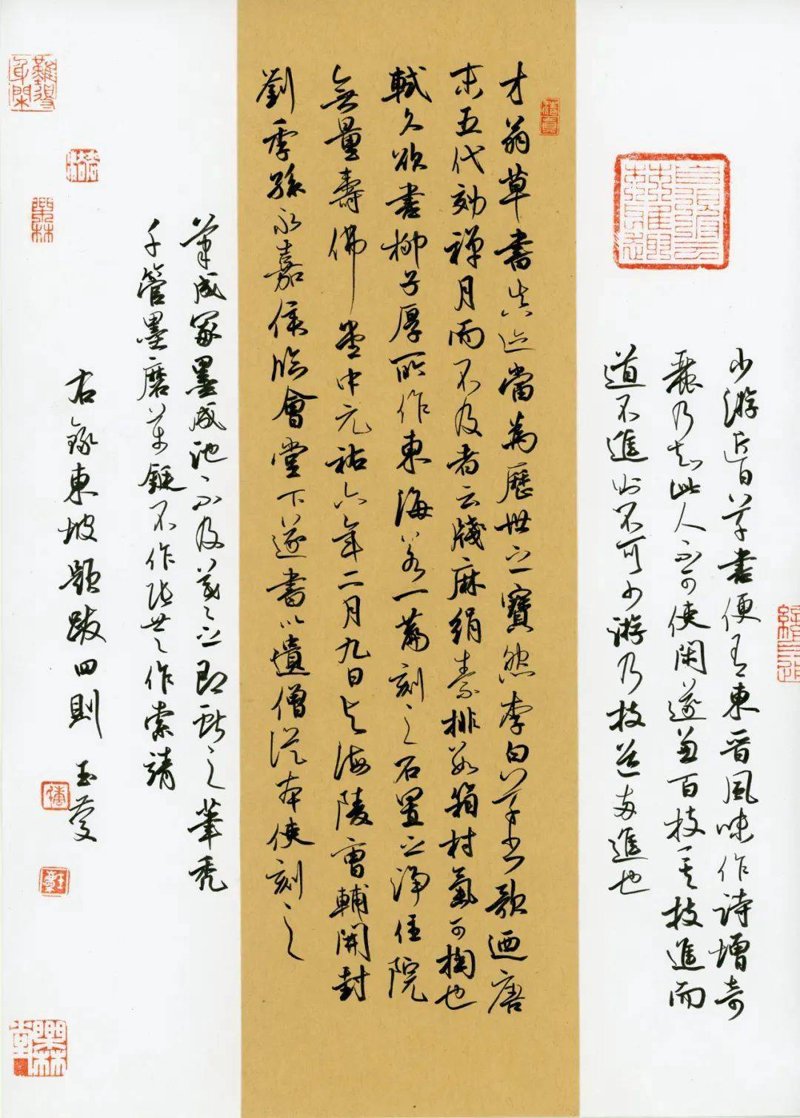 少游近日草書便有東晉風味作詩增奇
麗乃知此人不可使閑遂兼百技矣技進而
道不進則不可少游乃技道兩進也
才翁草書真迹當為歷世之寶然李白草書歌迺唐
末五代効禪月而不及者云牋麻絹素排數箱村氣可掬也
軾久欲書柳子厚所作東海若一篇刻之石置之淨住院
無量壽佛堂中元祐六年二月九日與海陵曹輔開封
劉季孫永嘉侯臨會堂下遂書以遺僧從本使刻之
筆成冢墨成池不及羲之即獻之筆禿
千管墨磨萬鋌不作張芝作索靖
右錄東坡題跋四則